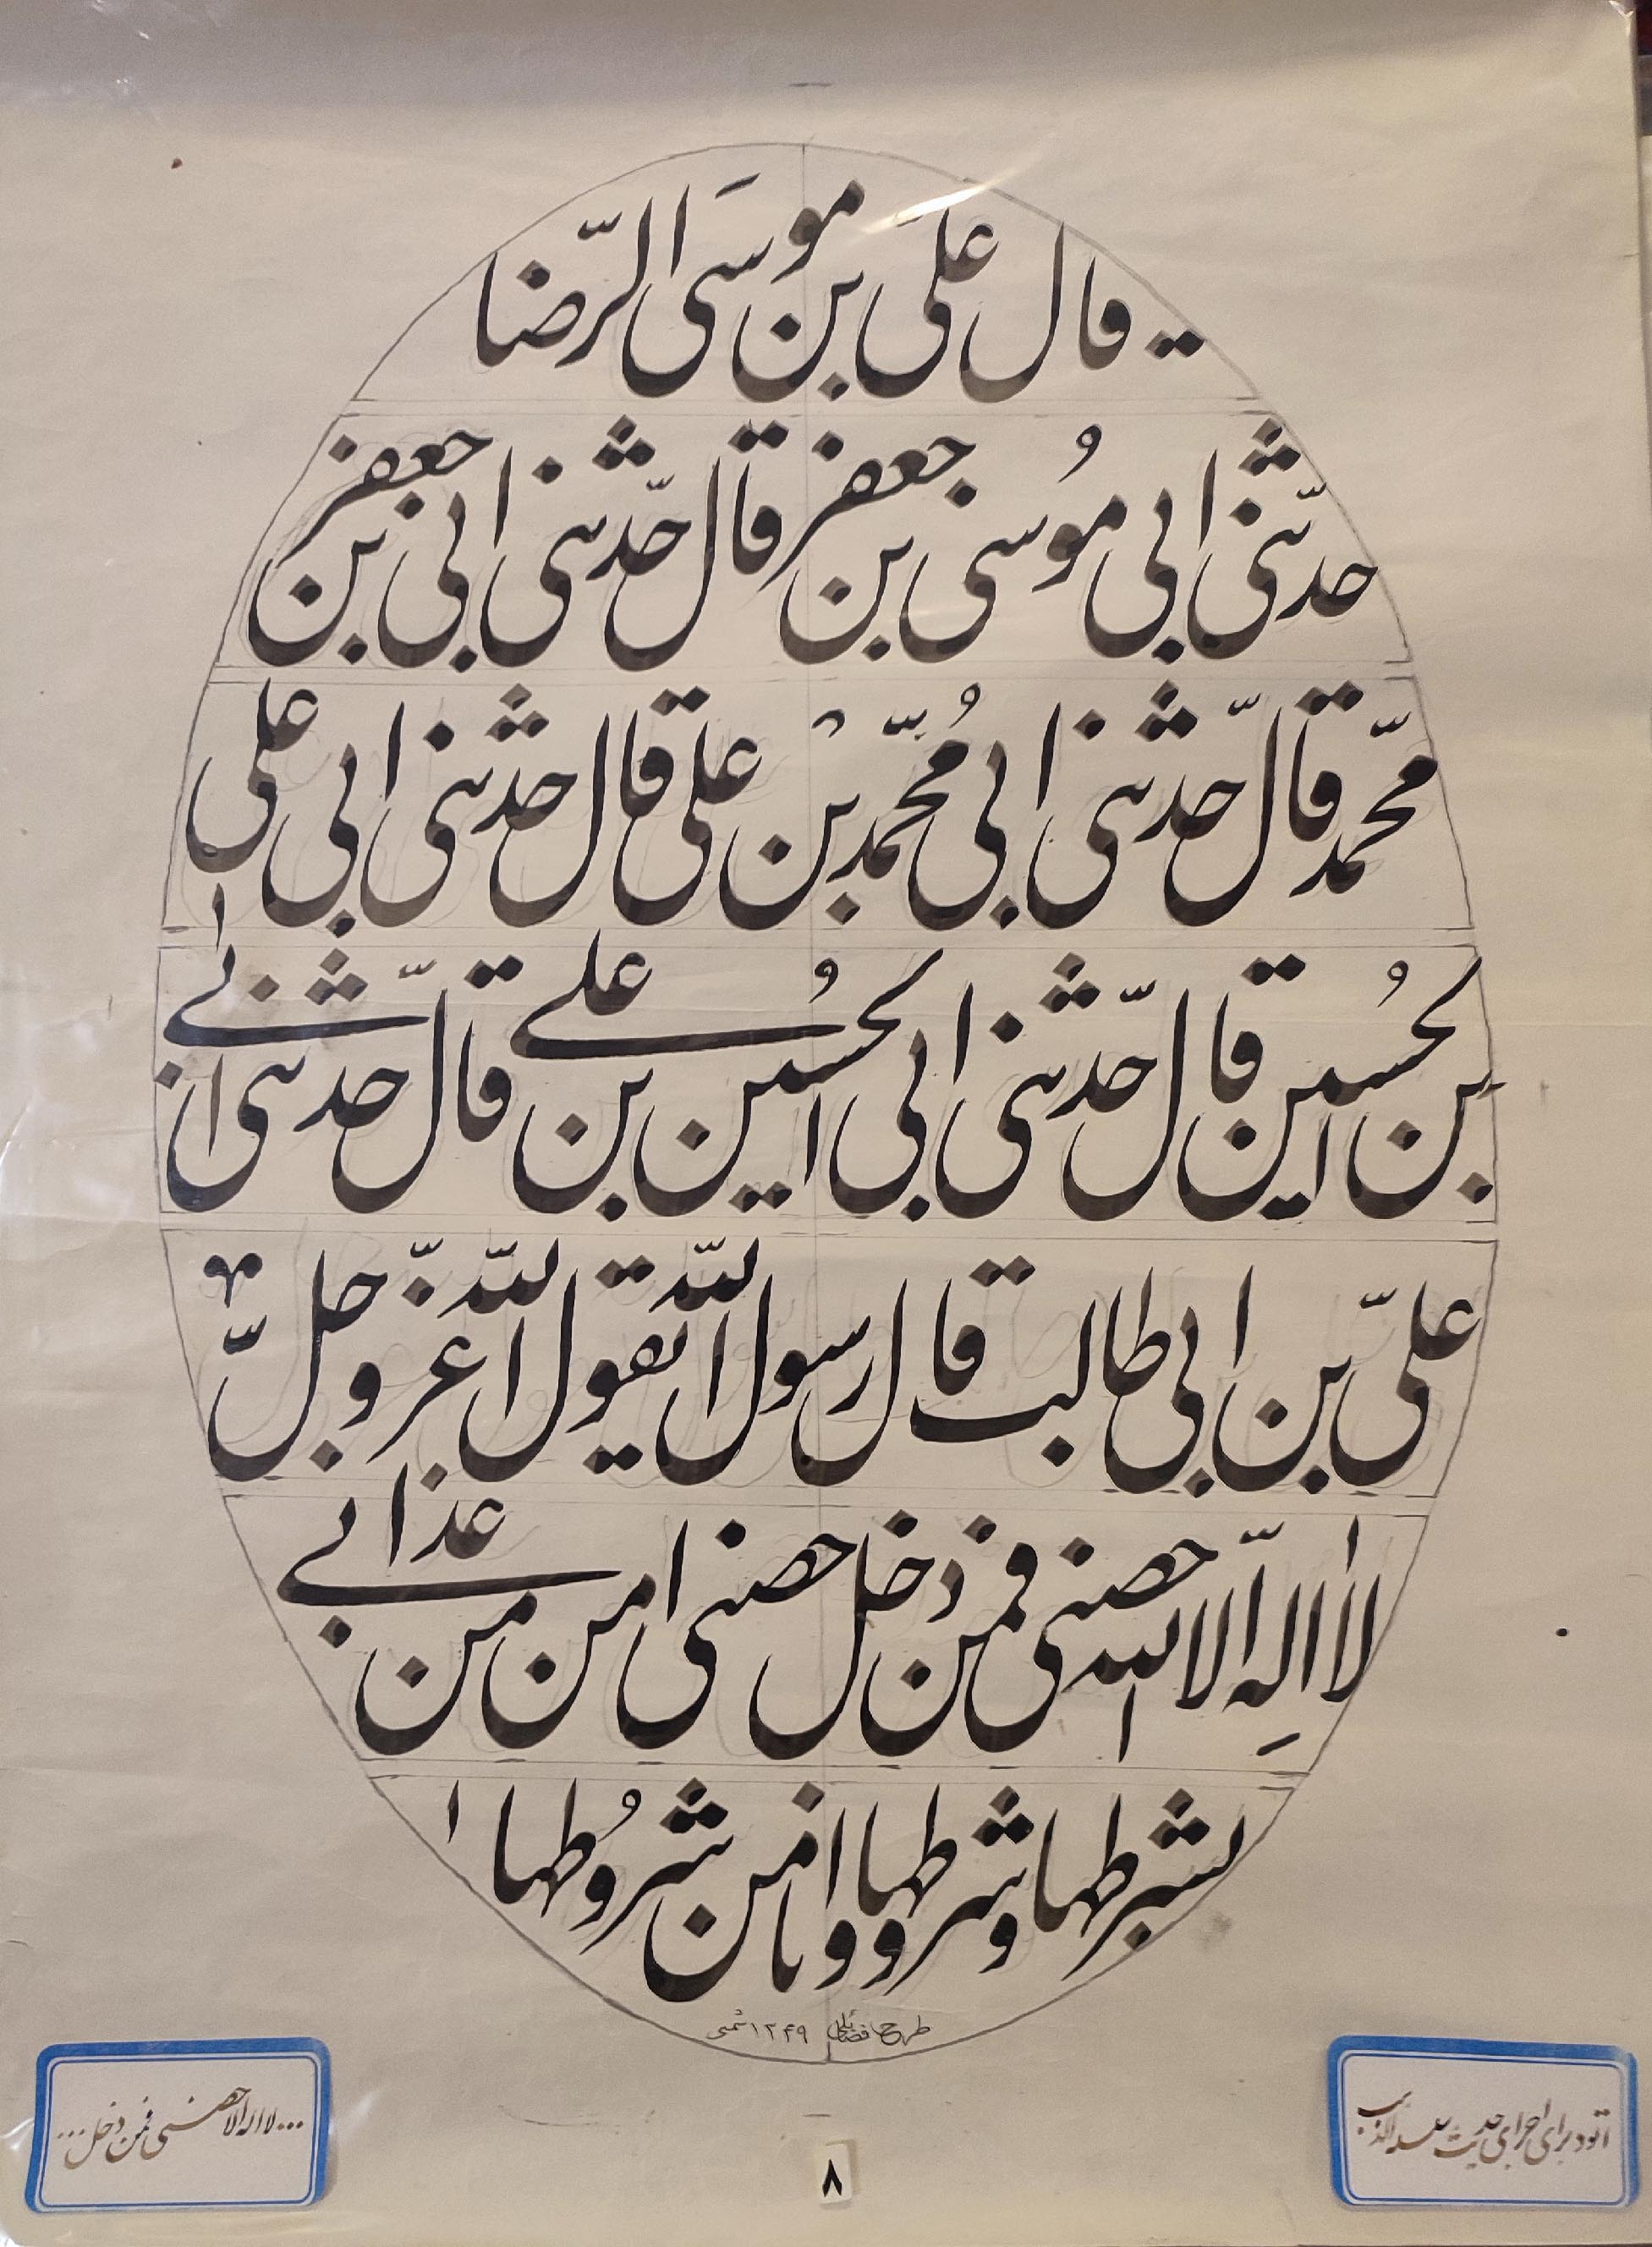 قال علی بن موسَی الرّضا
حدّثنی ابی موُسی بن جعفر قال حدّثنی ابی جعفر بن
محمّد قال حدّثنی ابی مُحمّد بن علی قال حدثنی ابی علی
بن الحُسین قال حدّثنی ابی الحُسین بن علی قال حدثنی ابی
علیّ بن ابی طالب قال رسول اللّه یقول اللّه عزّ و جلّ
لا اِله الّا اللّه حصنی فمن دخل حصنی امن من عذابی
بشرطها و شروطها و انا من شرُوطها
طرح فضائلی ۱۳۴۹ شمسی
...لا اله الا حصنی فمن دخل...
۸
اتود برای اجرای حدیث سلسلة الذهب